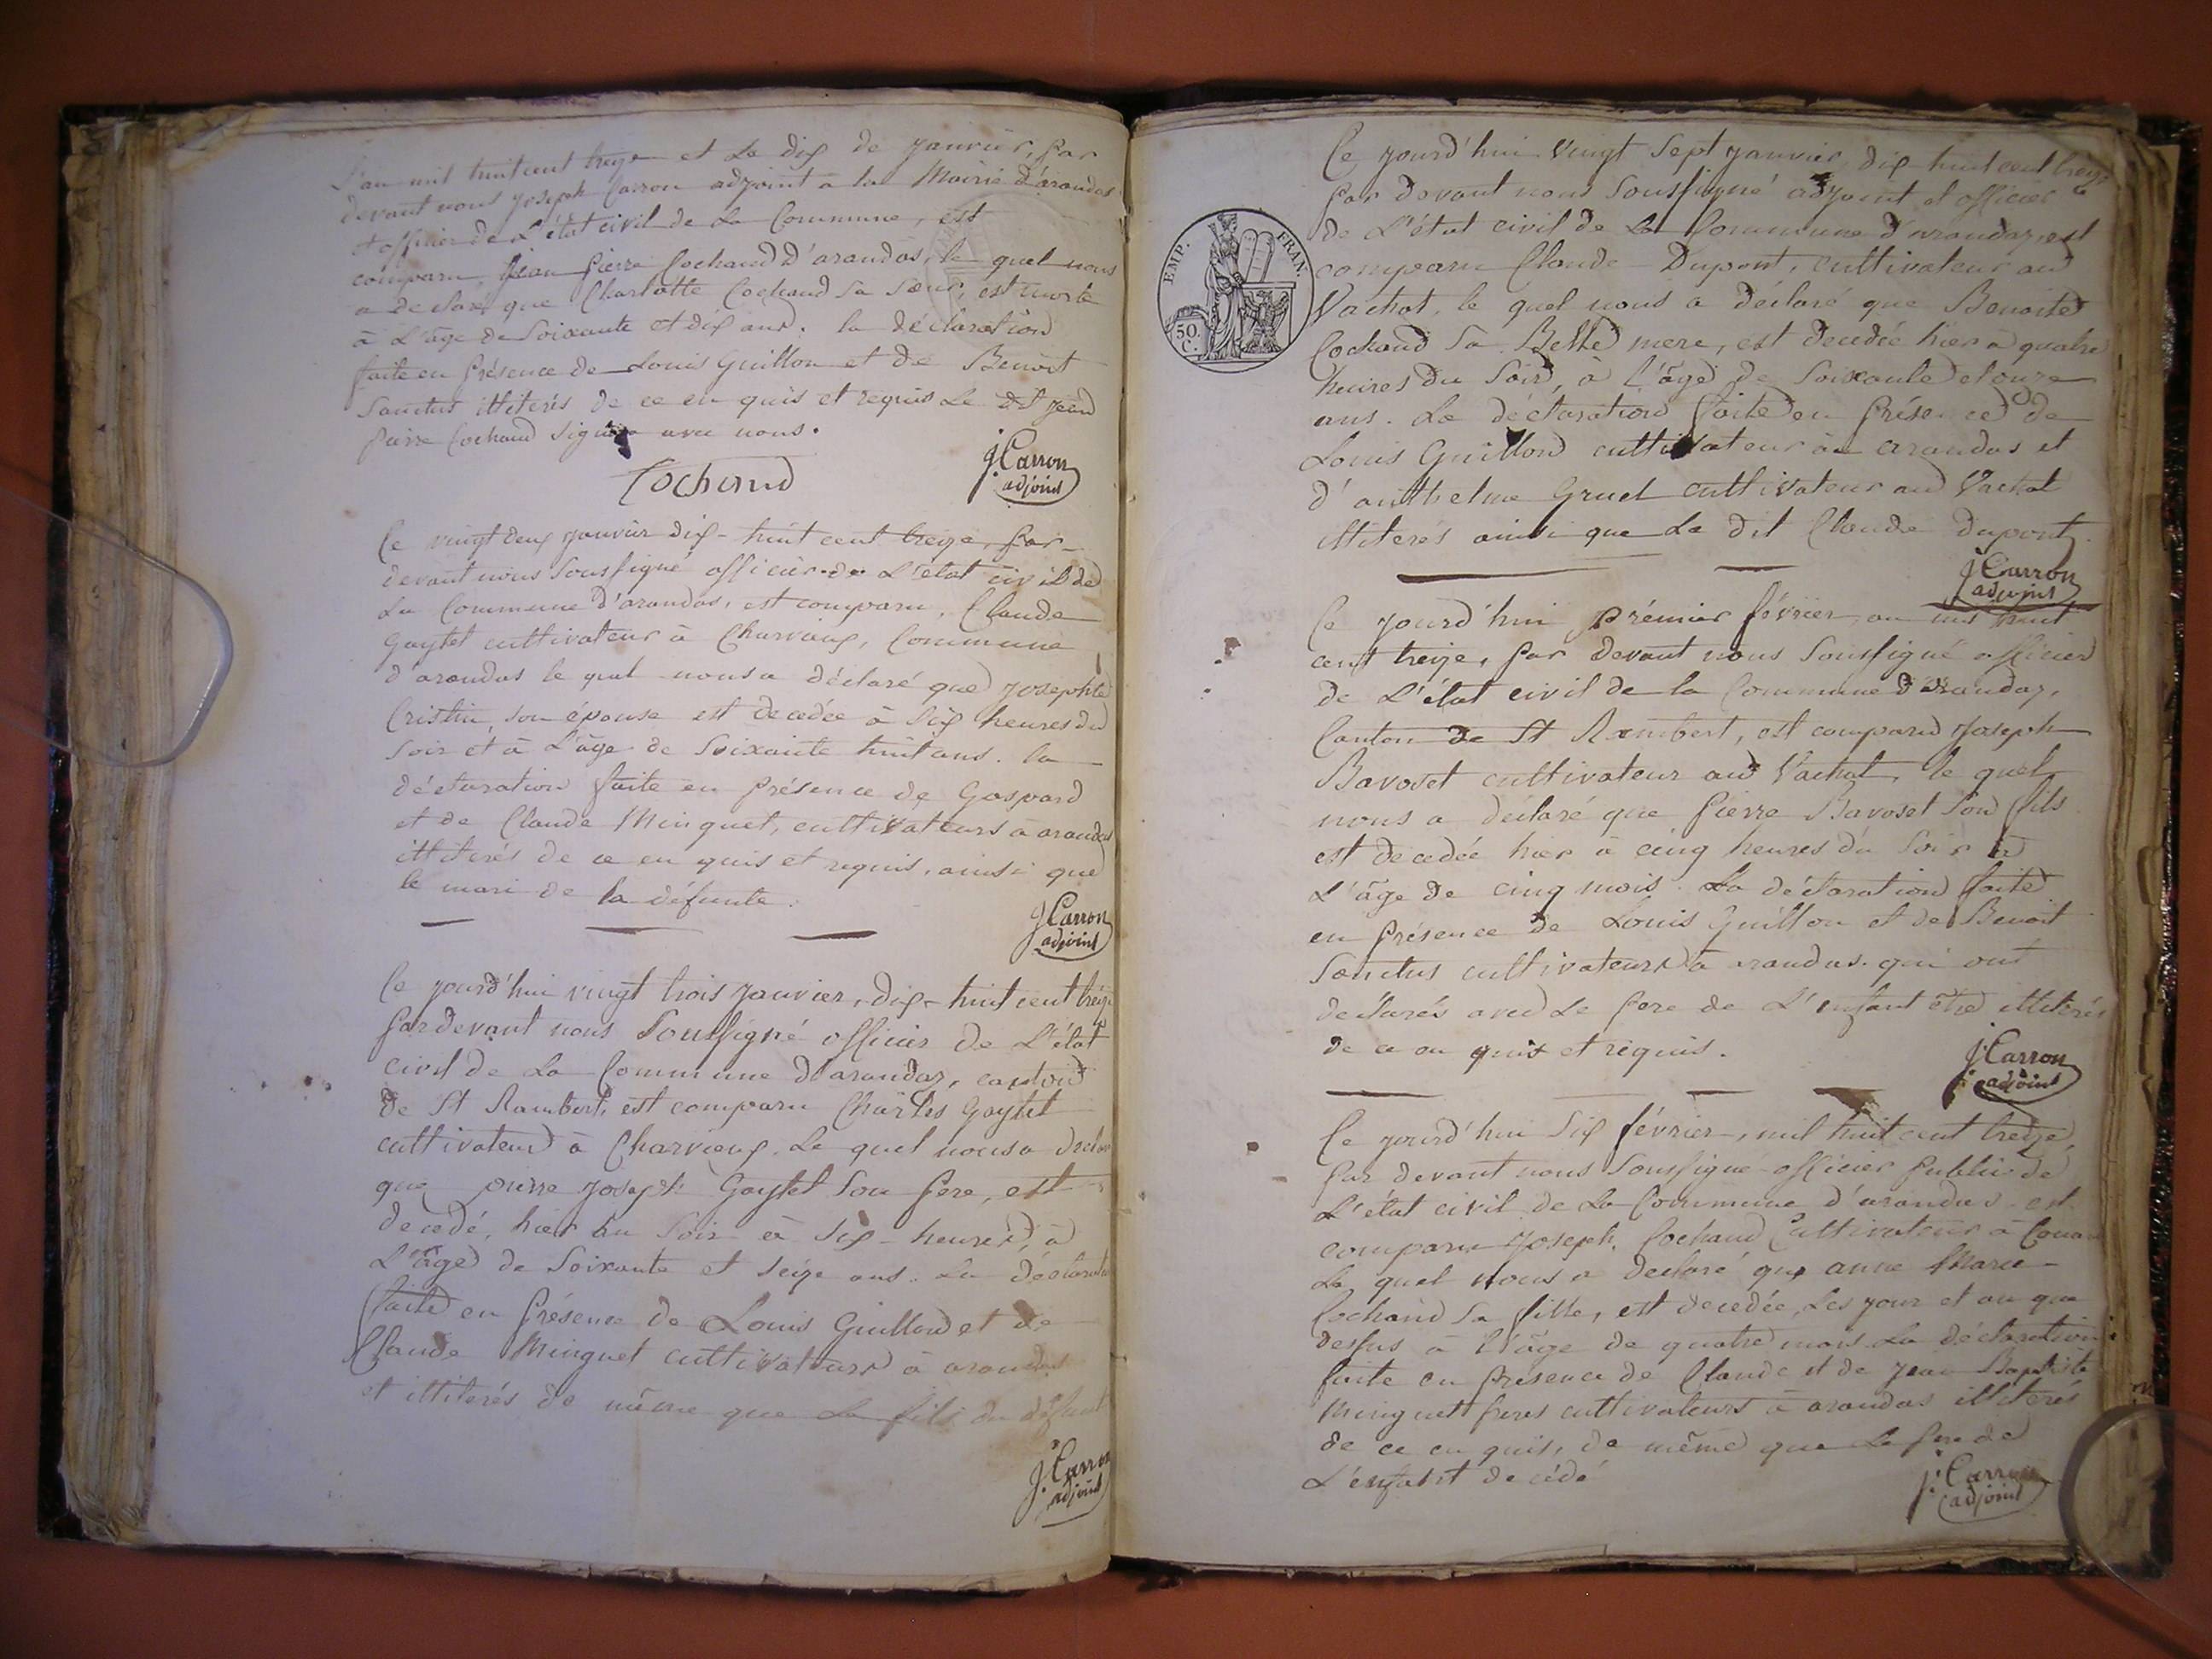 L'an mil huit cent treize et le dix de janvier, par
devant nous joseph Carron adjoint à la Mairie d'arandas
et officier de L'état civil de la Commune, est
comparu, jean pierre Cochaud d'arandas, le quel nous
a declaré que Charlotte Cochaud sa sœur, est morte
à L'âge de soixante et dix ans. la déclaration
faite en présence de Louis Guillon et de Benoit
Sanctus illiterés de ce en quis et requis Le dit jean
pierre Cochaud signé avec nous.
Cochaud
J. Carron
adjoint
Ce vingt deux janvier dix-huit cent treize, par-
devant nous soussigné officier de L'état civil de
La Commune d'arandas, est comparu, Claude
Gaytet cultivateur à Charvieux, Commune
d'arandas le quel nous a déclaré que josephte
Cristin, son épouse est decedée à six heures du
soir et à L'âge de soixante huit ans. la
déclaration faite en présence de Gaspard
et de Claude Minguet, cultivateurs à arandas
illiterés de ce en quis et requis, ainsi que
le mari de la défunte.
J. Carron
adjoint
Ce jourd'hui vingt trois janvier, dix-huit cent treize
par devant nous soussigné officier de L'état
civil de La Commune d'arandas, canton
de St Rambert, est comparu Charles Gaytet
cultivateur à Charvieux. Le quel nous a declaré
que pierre joseph Gaytet son pere, est
decedé, hier au soir à six heures, à
L'âge de soixante et seize ans. La déclaration
faite en présence de Louis Guillon et de
Claude Minguet cultivateurs à arandas
et illiterés de même que Le fils du défunt
J. Carron
adjoint
EMP. FRAN.
50
C.
Ce jourd'hui vingt sept janvier, dix huit cent treize
par devant nous soussigné adjoint et officier
de L'état civil de La Commune d'arandas, est
comparu Claude Dupont, cultivateur au
Vachat, le quel nous a déclaré que Benoite
Cochaud sa Belle mere, est decedée hier a quatre
heures du soir, à L'âge de soixante et onze
ans. La déclaration faite en présence de
Louis Guillon cultivateur à arandas et
d'anthelme Gruel cultivateur au Vachat
illiterés ainsi que Le dit Claude dupont.
J. Carron
adjoint
Ce jourd'hui prémier février, an mil huit
cent treize, par devant nous soussigné officier
de L'état civil de la Commune d'arandas,
Canton de St Rambert, est comparu joseph
Bavoset cultivateur au Vachat, le quel
nous a déclaré que pierre Bavoset son fils
est decedée hier à cinq heures du soir à
L'âge de cinq mois. La déclaration faite
en présence de Louis Guillon et de Benoit
Sanctus cultivateurs à arandas. qui ont
déclarés avec Le pere de L'enfant être illiterés
de ce en quis et requis.
J. Carron
adjoint
Ce jourd'hui six février, mil huit cent treize,
par devant nous soussigné officier public de
L'état civil de La Commune d'arandas est
comparu joseph Cochaud Cultivateur à
Le quel nous a declaré que anne Marie
Cochaud sa fille, est decedée, Les jour et an que
dessus à l'âge de quatre mois La déclaration
faite en présence de Claude et de jean Baptiste
Minguet freres cultivateurs à arandas illiterés
de ce en quis, de même que Le pere de
L'enfant decédé
J. Carron
adjoint